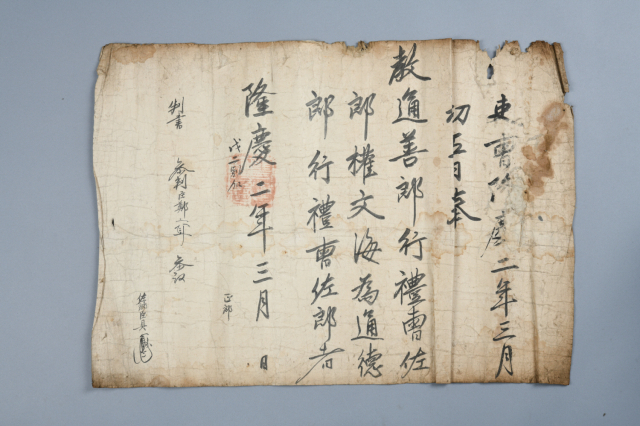 吏曹 二年三月
初五日奉
教通善郎行禮曹佐
郎權文海為通德
郎行禮曹佐郎者
隆慶二年三月 日
正郎
判書 參判 參議